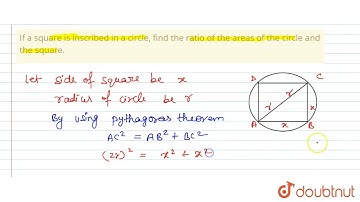 If a square is inscribed in a circle, find the ratio of the areas of the circle and
the square.
Let side of square be x
radius of circle be r
By using pythagoras theorem
AC² = AB² + BC²
(2r)² = x² + x²
D C
r
r x
A x B
doubtnut